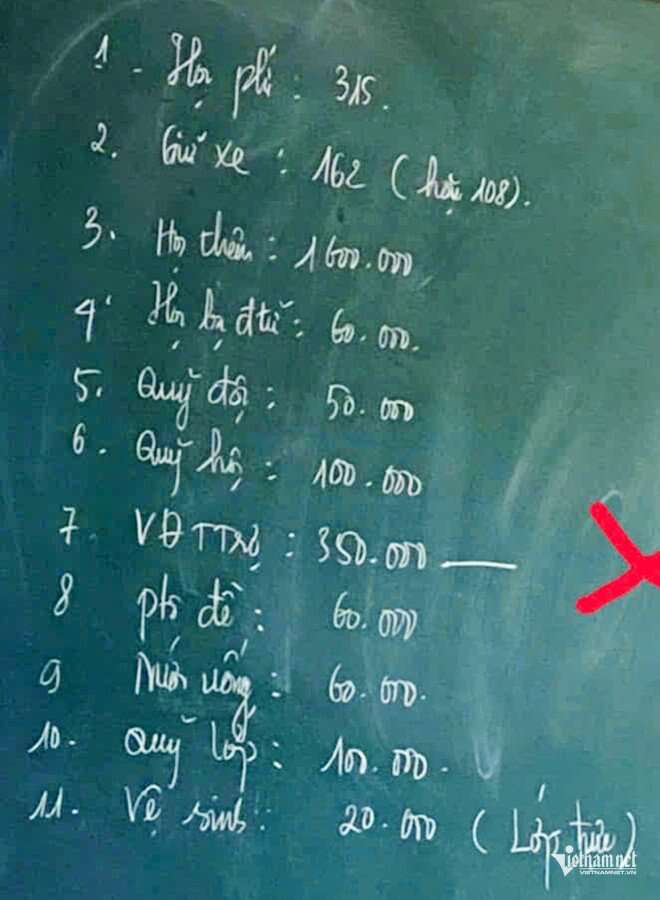 1 - Học phí : 315.
2. Giữ xe : 162 (hoặc 108).
3. Học thêm : 1600.000
4. Học bạ đ tử : 60.000.
5. Quỹ đội : 50.000
6. Quỹ hội : 100.000
7 VĐ TTrợ : 350.000 —
8 phô đề : 60.000
9 Nước uống : 60.000.
10. Quỹ lớp : 100.000.
11. Vệ sinh : 20.000 ( Lớp thu )
vietnamnet
VIETNAMNET.VN